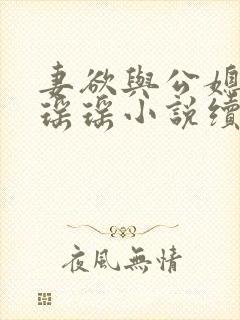 妻欲與公媳
瑤瑤小說續
夜風無情